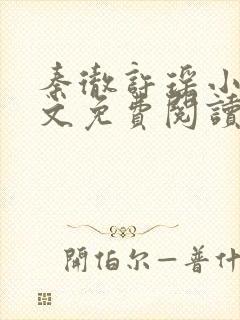 秦徹許瑤小
文免費閱讀
開伯尔—普什